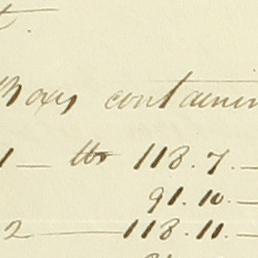 t.
Boxes containin
1 — lbs 118.7.—
91.10.—
2 — 118.11.—